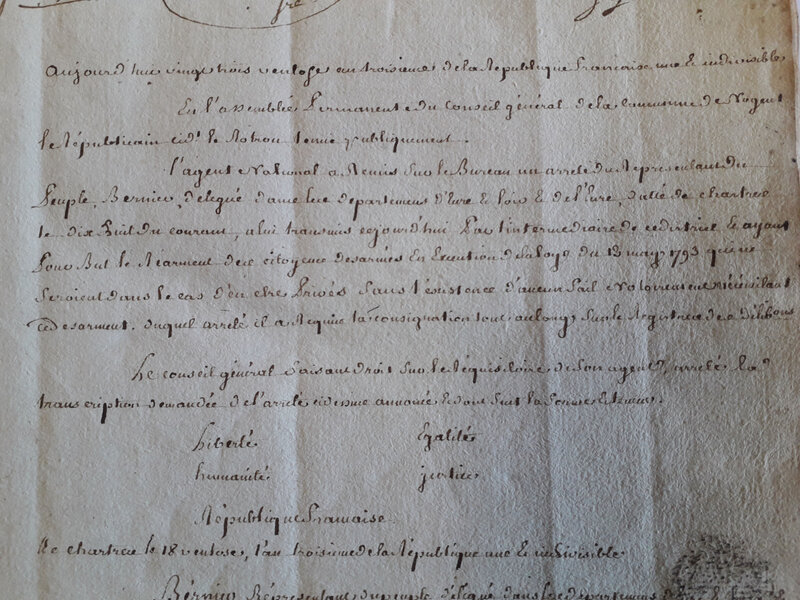 Aujourd'hui vingt trois ventose an troisieme de la République francaise une & indivisible
En l'assemblée Permanente du Conseil général de la commune de Nogent
le Républicain cid.t le Rotrou tenue publiquement.
l'agent National a Remis sur le Bureau un arreté du Représentant du
Peuple, Bernier, délégué dans les departements d'Eure & loir & de l'Eure, datté de chartres
le dix huit du courant, a lui transmis cejourd'hui Par l'intermédiaire de ce district & ayant
Pour But le Réarment des citoyens desarmés En Execution de la loy du 13 may 1793 qui ne
seroient dans le cas d'en etre Privés sans l'éxistence d'aucun fait Notoirement nécéssitant
ce desarment. duquel arreté il a Requis la consignation tout au long sur le Registre de ses délibons
Le conseil général faisant droit sur le Réquisitoire de son agent, arreté la
transcription demandée de l'arreté cidessus annoncé & dont suit la teneur
Liberté Egalité
humanité justice
République francaise
De chartres le 18 ventose, l'an troisieme de la République une & indivisible
Bérnier Représentant du peuple délégué dans les départements